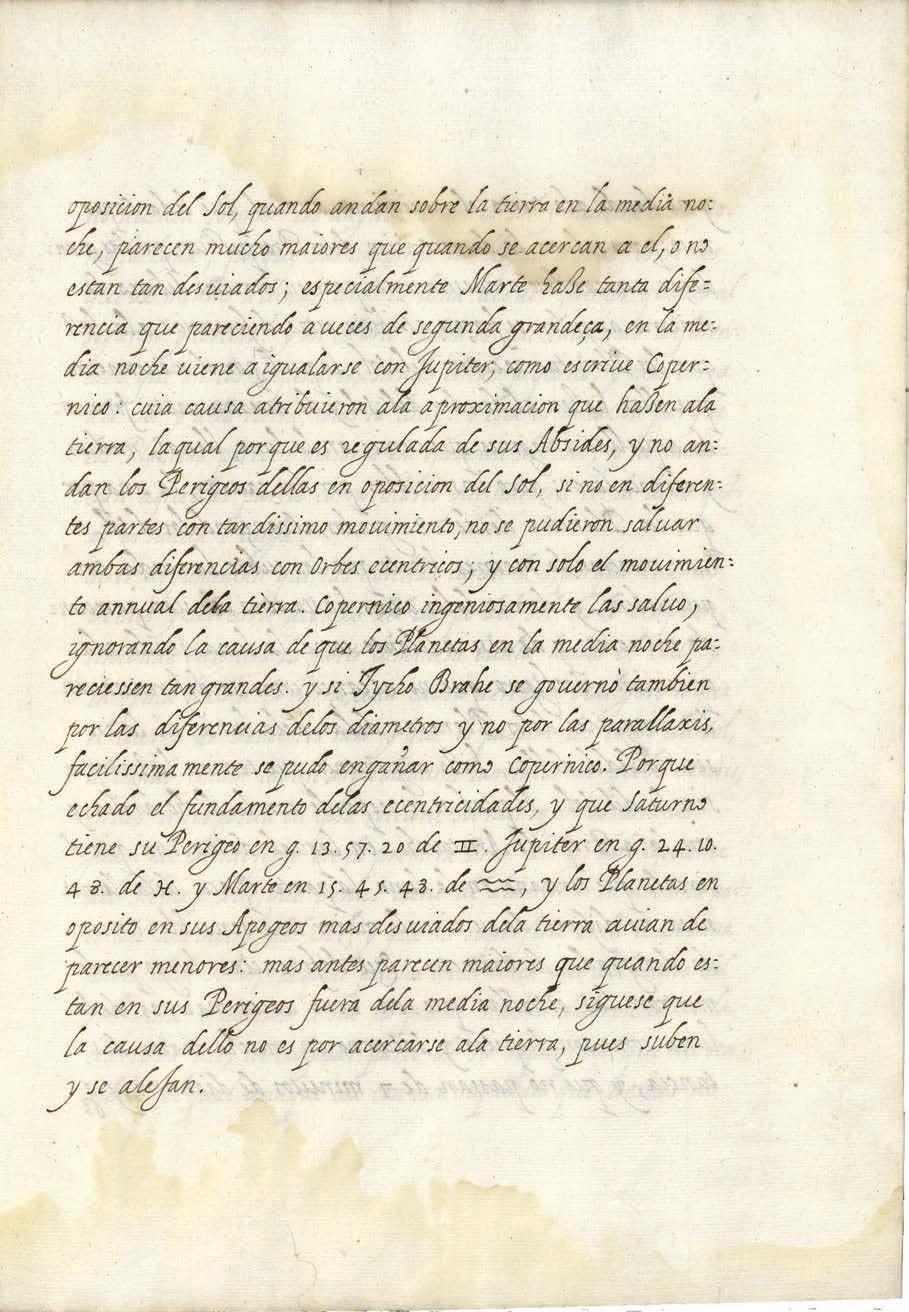 oposicion del Sol, quando andan sobre la tierra en la media no:
che, parecen mucho maiores que quando se acercan a el, o no
estan tan desviados; especialmente Marte haze tanta dife=
rencia que pareciendo a veces de segunda grandeça, en la me:
dia noche viene a igualarse con Jupiter, como escrive Coper:
nico: cuia causa atribuieron ala aproximacion que hazen ala
tierra, laqual porque es regulada de sus Absides, y no an:
dan los Perigeos dellas en oposicion del Sol, si no en diferen:
tes partes con tardissimo movimiento, no se pudieron salvar
ambas diferencias con Orbes ecentricos; y con solo el movimien:
to annual dela tierra. Copernico ingeniosamente las salvo,
ignorando la causa de que los Planetas en la media noche pa:
reciessen tan grandes. y si Tycho Brahe se governò tambien
por las diferencias delos diametros y no por las parallaxis,
facilissimamente se pudo engañar como Copernico. Porque
echado el fundamento delas ecentricidades, y que Saturno
tiene su Perigeo en g. 13. 57. 20 de ♊. Jupiter en g. 24. 10.
48. de ♓. y Marte en 15. 45. 48. de ♒, y los Planetas en
oposito en sus Apogeos mas desviados dela tierra avian de
parecer menores: mas antes parecen maiores que quando es:
tan en sus Perigeos fuera dela media noche, siguese que
la causa dello no es por acercarse ala tierra, pues suben
y se alejan.